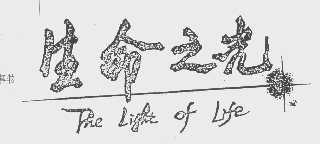 生命之光
The Light of Life